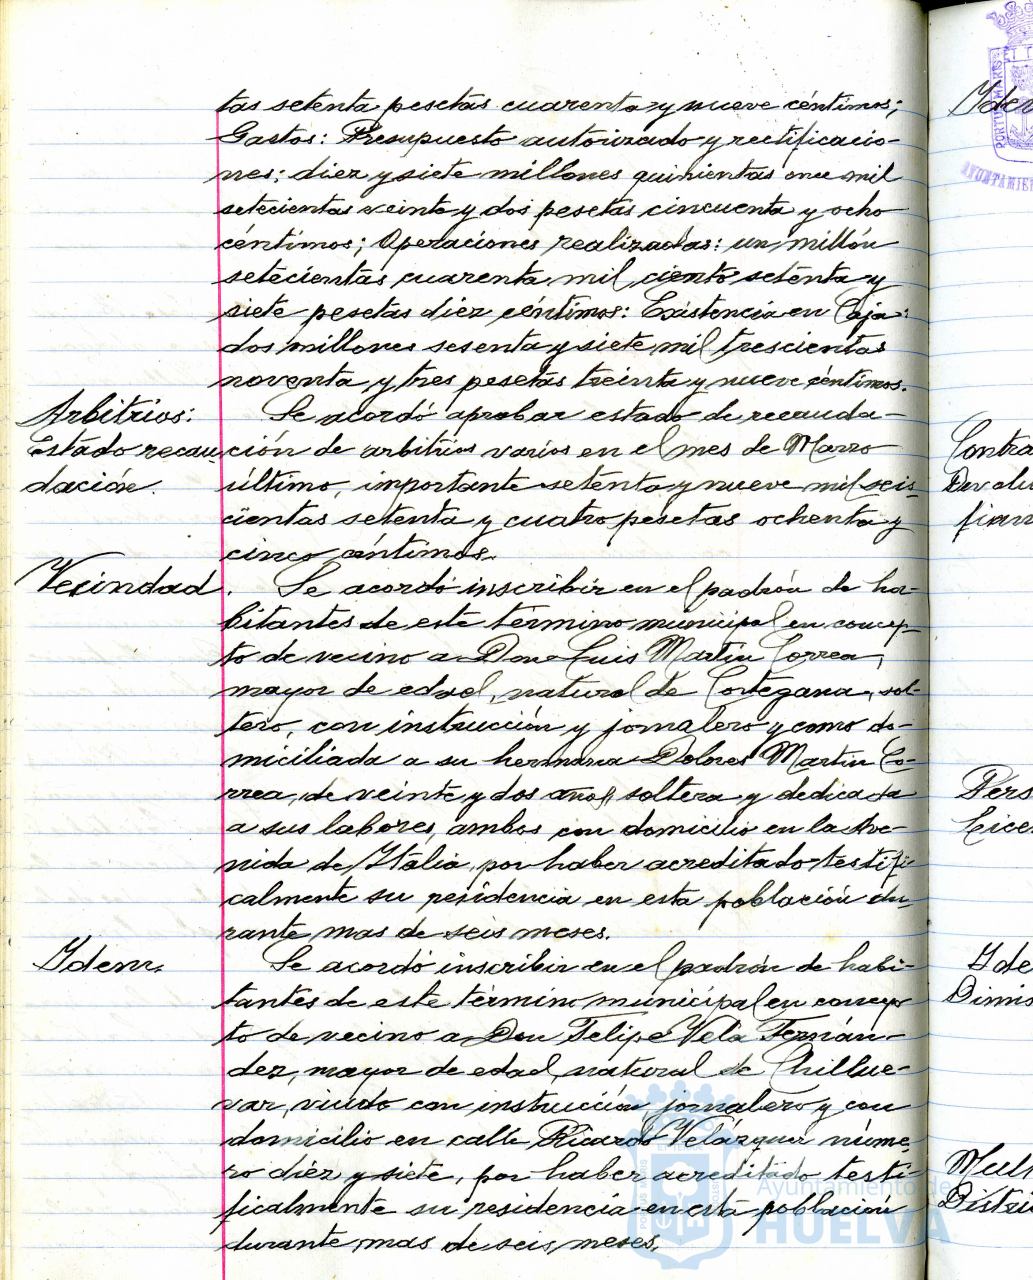 tas setenta pesetas cuarenta y nueve céntimos;
Gastos: Presupuesto autorizado y rectificacio-
nes; diez y siete millones quinientas once mil
setecientas veinte y dos pesetas cincuenta y ocho
céntimos; Operaciones realizadas: un millón
setecientas cuarenta mil ciento setenta y
siete pesetas diez céntimos: Existencia en Caja:
dos millones sesenta y siete mil trescientas
noventa y tres pesetas treinta y nueve céntimos.
Arbitrios:
Estado recau-
dación.
Se acordó aprobar estado de recauda-
ción de arbitrios varios en el mes de Marzo
último, importante setenta y nueve mil seis-
cientas setenta y cuatro pesetas ochenta y
cinco céntimos.
Vecindad.
Se acordó inscribir en el padrón de ha-
bitantes de este término municipal en concep-
to de vecino a Don Luis Martín Correa,
mayor de edad, natural de Cortegana, sol-
tero, con instrucción y jornalero y como do-
miciliada a su hermana Dolores Martín Co-
rrea, de veinte y dos años, soltera y dedicada
a sus labores, ambos con domicilio en la Ave-
nida de Italia, por haber acreditado testifi-
calmente su residencia en esta población du-
rante mas de seis meses.
Idem.
Se acordó inscribir en el padrón de habi-
tantes de este término municipal en concep-
to de vecino a Don Felipe Vela Fernán-
dez, mayor de edad, natural de Chillue-
var, viudo con instrucción, jornalero y con
domicilio en calle Ricardo Velázquez núme-
ro diez y siete, por haber acreditado testi-
ficalmente su residencia en esta población
durante mas de seis meses.
Ayuntamiento de
HUELVA
Idem
Contra
Devolu
fian
Pers
Lice
Ide
Dimis
Mul
Distri